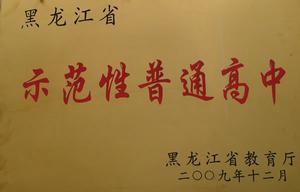 黑龙江省
示范性普通高中
黑龙江省教育厅
二〇〇九年十二月